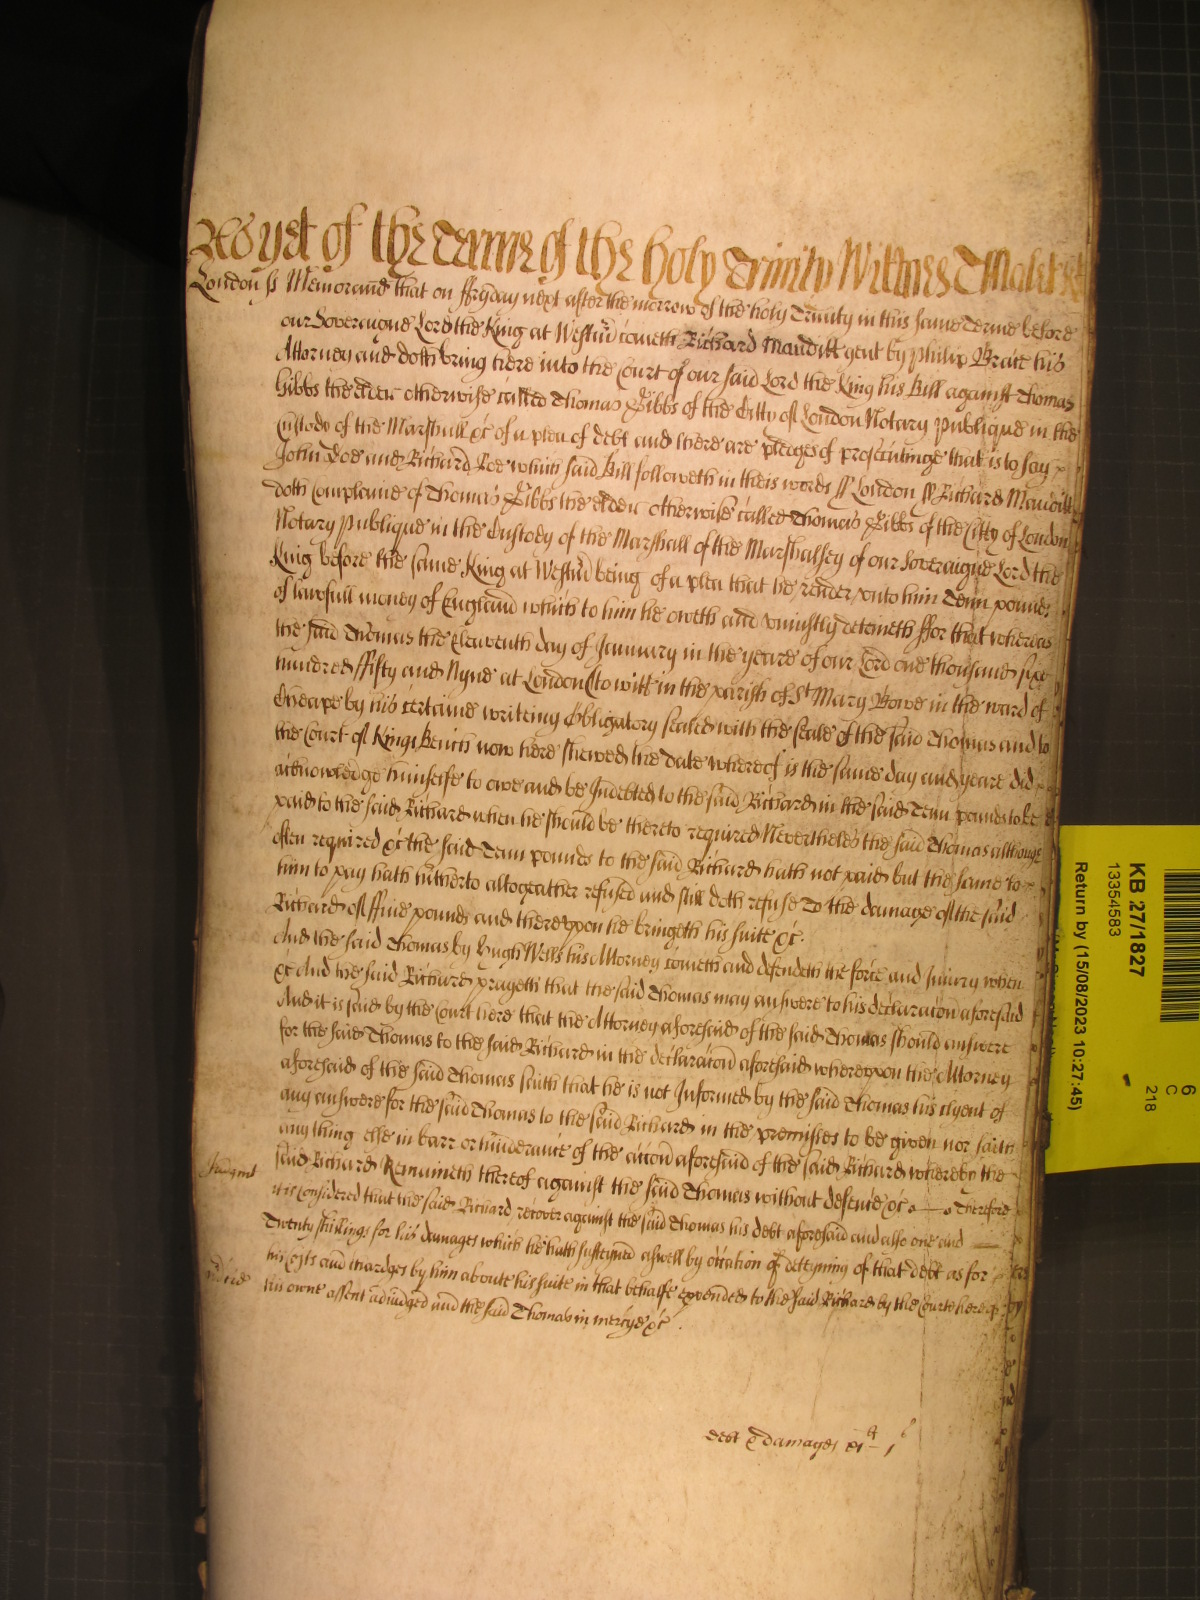 As yet of the Terme of the holy Trinity Wittnes T Malet
London ss Memorand that on ffryday next after the morrow of the holy Trinity in this same Terme before
our Soveraigne Lord the King at Westm cometh Richard Mauditt gent by Philip Brace his
Attorney and doth bring here into the Court of our said Lord the King his Bill against Thomas
Gibbs the elder otherwise called Thomas Gibbs of the Citty of London Notary Publique in the
Custody of the Marshall &c of a plea of debt and there are pledges of prosecutinge that is to say
John Doe and Richard Roe which said Bill followeth in theis words ss London ss Richard Mauditt
doth Complaine of Thomas Gibbs the elder otherwise called Thomas Gibbs of the Citty of London
Notary Publique in the Custody of the Marshall of the Marshalsey of our Soveraigne Lord the
King before the same King at Westm being of a plea that he render unto him Tenn pounds
of lawfull money of England which to him he oweth and uniustly deteineth ffor that whereas
the said Thomas the Eleaventh day of January in the yeare of our Lord one thousand six
hundred ffifty and Nyne at London to witt in the parish of St Mary Bowe in the ward of
Cheape by his certaine writeing Obligatory sealed with the seale of the said Thomas and to
the Court of Kings Bench now here shewed the date whereof is the same day and yeare did
acknowledge himselfe to owe and be Indebted to the said Richard in the said Tenn pounds to be
paid to the said Richard when he should be thereto required Neverthelesse the said Thomas although
often required &c the said Tenn pounds to the said Richard hath not paid but the same to
him to pay hath hitherto altogeather refused and still doth refuse To the damage of the said
Richard of ffive pounds and thereuppon he bringeth his suite &c.
And the said Thomas by Hugh Wells his Attorney cometh and defendeth the force and Iniury when
&c And the said Richard prayeth that the said Thomas may answere to his declaracion aforesaid
And it is said by the Court here that the Attorney aforesaid of the said Thomas should answere
for the said Thomas to the said Richard in the declaracion aforesaid whereuppon the Attorney
aforesaid of the said Thomas saith that he is not Informed by the said Thomas his clyent of
any answere for the said Thomas to the said Richard in the premisses to be given nor saith
any thing else in barr or hinderance of the accion aforesaid of the said Richard whereby the
said Richard Remaineth thereof against the said Thomas without defence &c Therefore
Iudgmt
it is Considered that the said Richard recover against the said Thomas his debt aforesaid and also one and
Twenty shillings for his damages which he hath susteyned aswell by occation of deteyning of that debt as for
his costs and chardges by him aboute his suite in that behalfe expended to the said Richard by the Courte here
his owne assent adiudged and the said Thomas in mercye &c.
debt & damages xi li i s
KB 27/1827
13354583
Return by (15/08/2023 10:27:45)
6
C
218